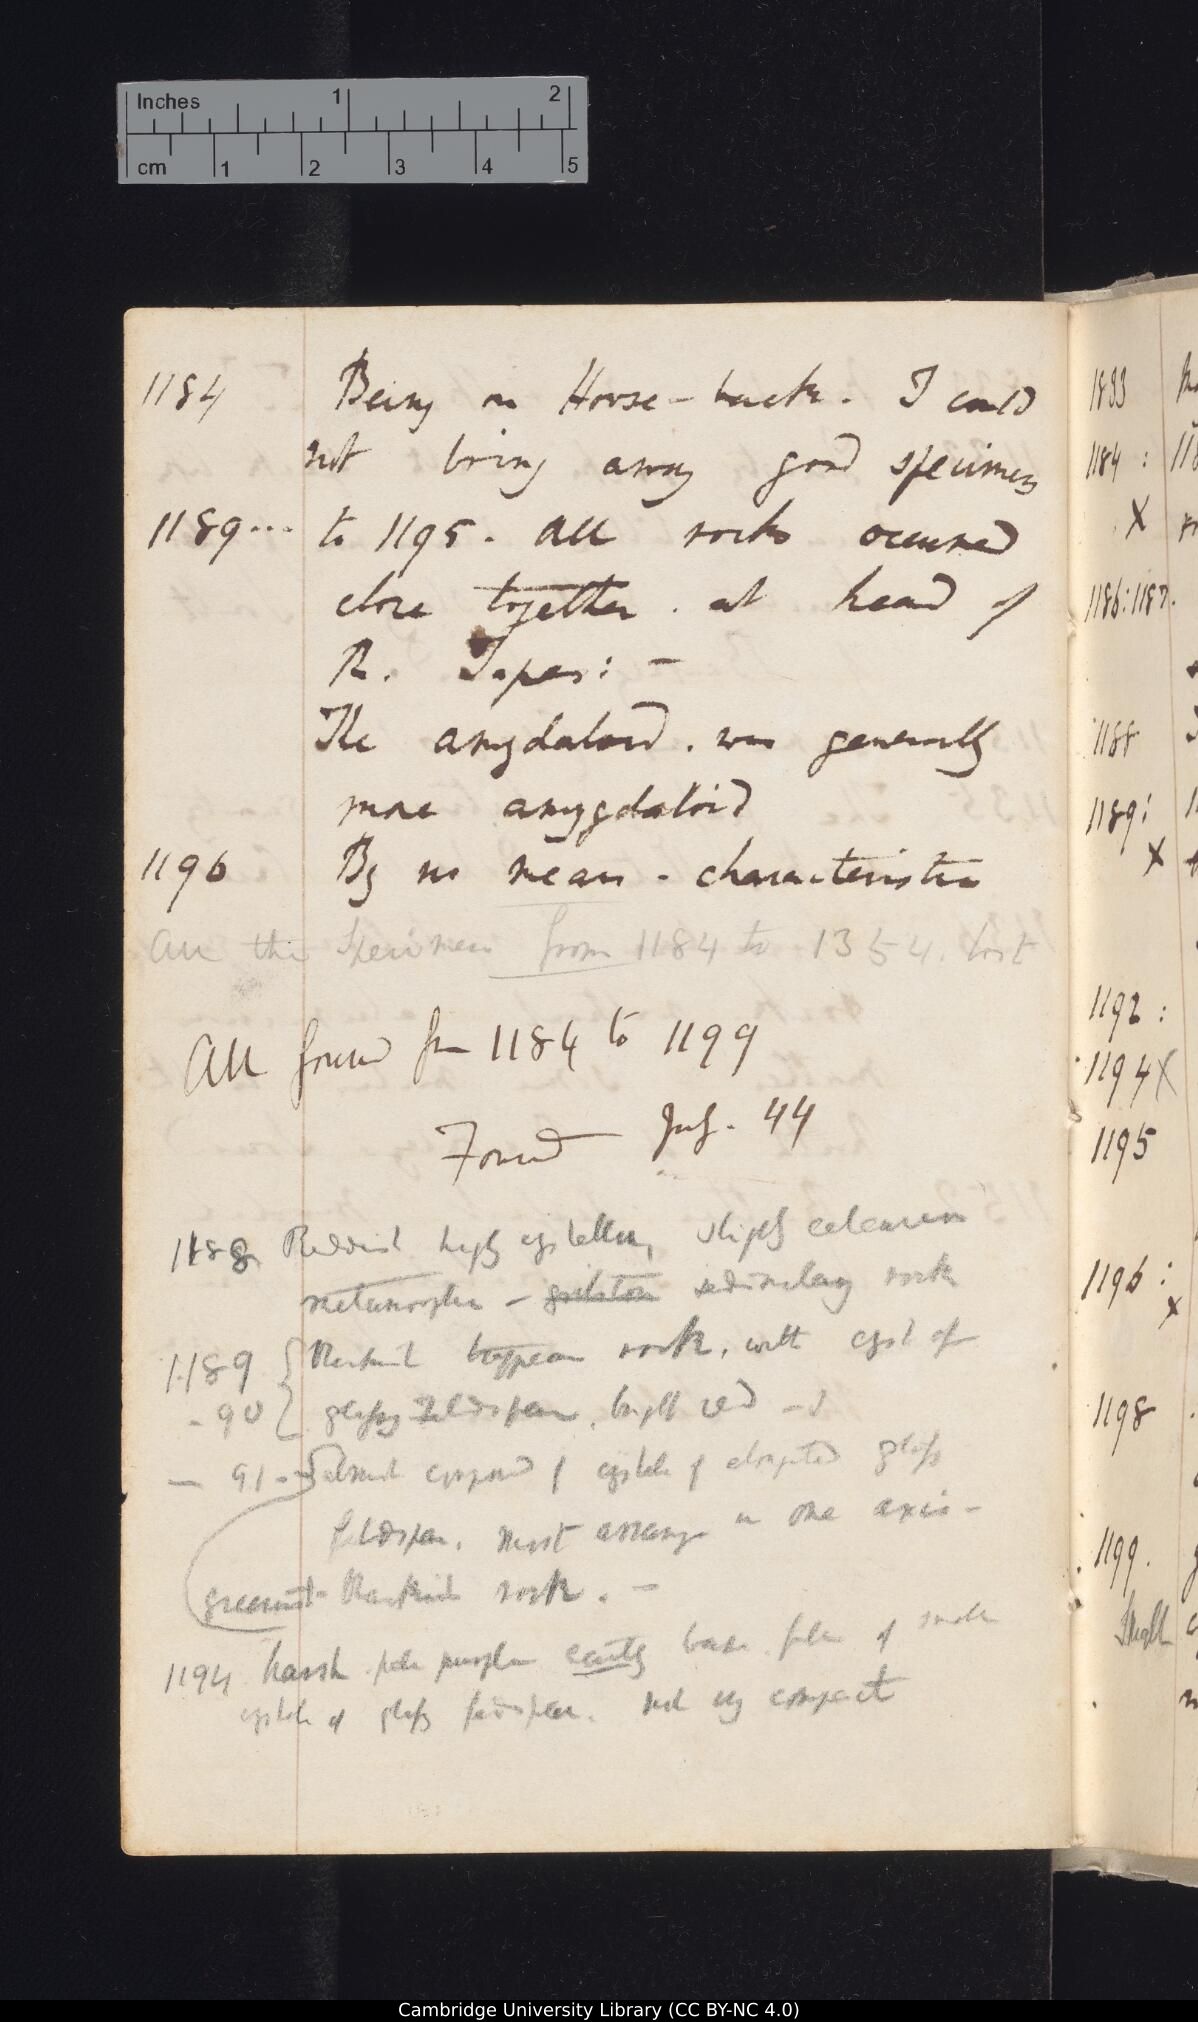 Inches 1 2
cm 1 2 3 4 5
1184 Being on Horse-back. I could
not bring away good specimens
1189... to 1195. All rocks occurred
close together. at head of
R. Tapes: —
The amygdaloid. was generally
more amygdaloid
1196 By no means - characteristic
All the specimens from 1184 to 1354. lost
All found from 1184 to 1199
Found July. 44
1188 Reddish highly crystalline, slightly calcareous
metamorphic — sedimentary rock
1189 trappean rock, with cryst of
- 90 glassy Feldspar, bright red
— 91 - almost composed of crystals of elongated glassy
feldspar. most arrange in one axis -
greenish blackish rock. —
1194 harsh pale purple earthy base full of small
crystals of glassy feldspar. not very compact
1833
1184 :
X
1186:1187.
1188
1189:
X
1192 :
1194 X
1195
1196 :
X
1198
1199.
Small
Cambridge University Library (CC BY-NC 4.0)